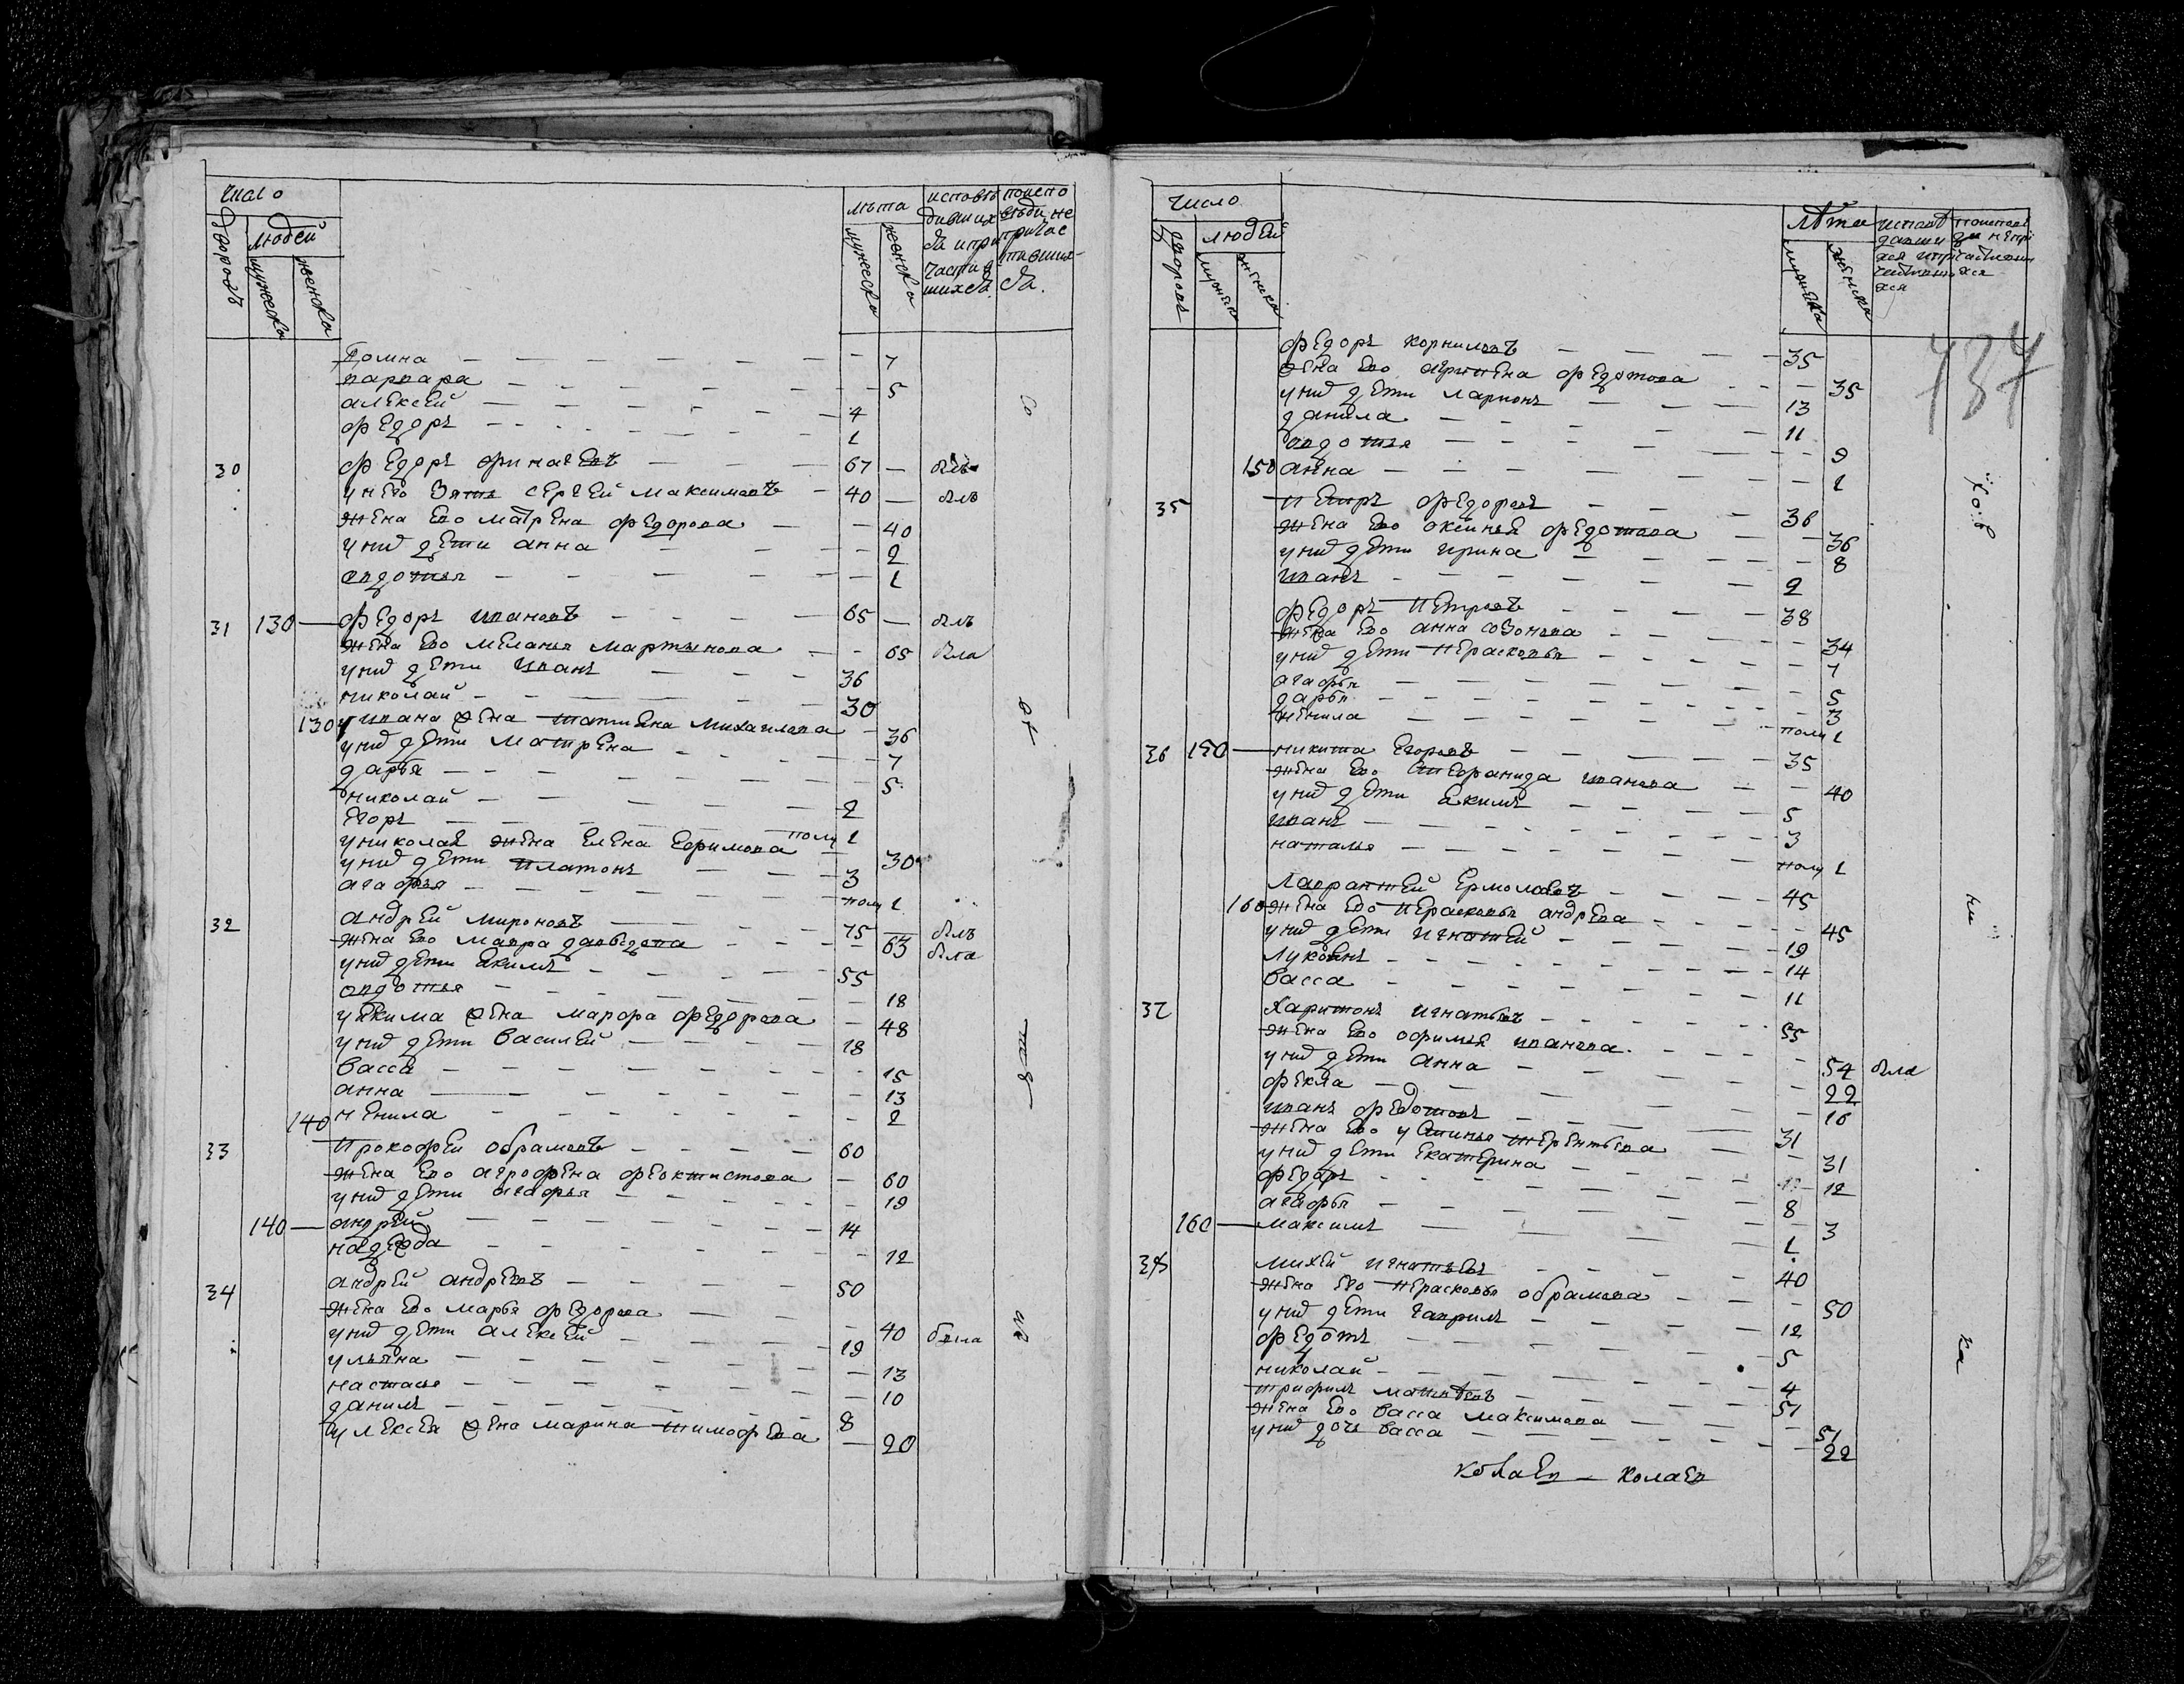 число
дворовъ
людей
мужеска
женска
лѣта
мужеска
женска
исповѣ
дывших
ся и при
части в
шихся
поиспо
вѣди не
причас
тивших
ся.
Домна — 7
варвара — 5
алексей — 4
федоръ — 1
30 федоръ — 67 — былъ
у него зять сергей максимовъ — 40 — былъ
жена ево матрена федорова — 40
у них дети анна — 2
овдотья — 1
31 130 — федоръ ивановъ — 65 — былъ
жена ево меланья мартынова — 65 была
у них дети иванъ — 36
николай — 30
130 у ивана жена татияна михаилова — 36
у них дети матрена — 7
дарья — 5
николай — 2
егоръ — полу 1
у николая жена елена ефимова — 30
у них дети платонъ — 3
агафья — полу 1
32 андрей мироновъ — 75 — былъ
жена ево мавра давыдова — 63 была
у них дети акимъ — 55
овдотья — 18
у якима жена марфа федорова — 48
у них дети василей — 18
васса — 15
анна — 13
140 ненила — 2
33 прокофей обрамовъ — 60
жена ево агрофена феоктистова — 60
у них дети агафья — 19
140 — андрей — 14
надежда — 12
34 андрей андреевъ — 50
жена ево марья федорова — 40 была
у них дети алексей — 19
ульяна — 13
настасья — 10
данилъ — 8
у лексея жена марина тимофеева — 20
число
дворовъ
людей
мужеска
женска
лѣта
мужеска
женска
734
федоръ корниловъ — 35
жена ево агрипена федотова — 35
у них дети ларионъ — 13
данила — 11
овдотья — 9
150 анна — 1
35 петръ федоровъ — 36
жена ево оксинья федотова — 36
у них дети ирина — 8
иванъ — 2
федоръ петровъ — 38
жена ево анна созонова — 34
у них дети перасковья — 7
агафья — 5
дарья — 3
ненила — полу 1
36 150 — никита егоровъ — 35
жена ево степанида иванова — 40
у них дети акимъ — 5
иванъ — 3
наталья — полу 1
лаврантей ермолаевъ — 45
160 жена ево перасковья андреева — 45
у них дети игнатей — 19
лукоянъ — 14
васса — 11
37 харитонъ игнатьевъ — 55
жена ево офимья иванова — 54 была
у них дети анна — 22
фекла — 16
иванъ федотовъ — 31
жена ево устинья терентьева — 31
у них дети екатерина — 12
федоръ — 8
агафья — 3
160 — максимъ — 1
38 михей игнатьевъ — 40
жена его перасковья обрамова — 50
у них дети гаврилъ — 12
федотъ — 5
николай — 4
трифилъ матвѣевъ — 51
жена ево васса максимова — 51
у них дочь васса — 22